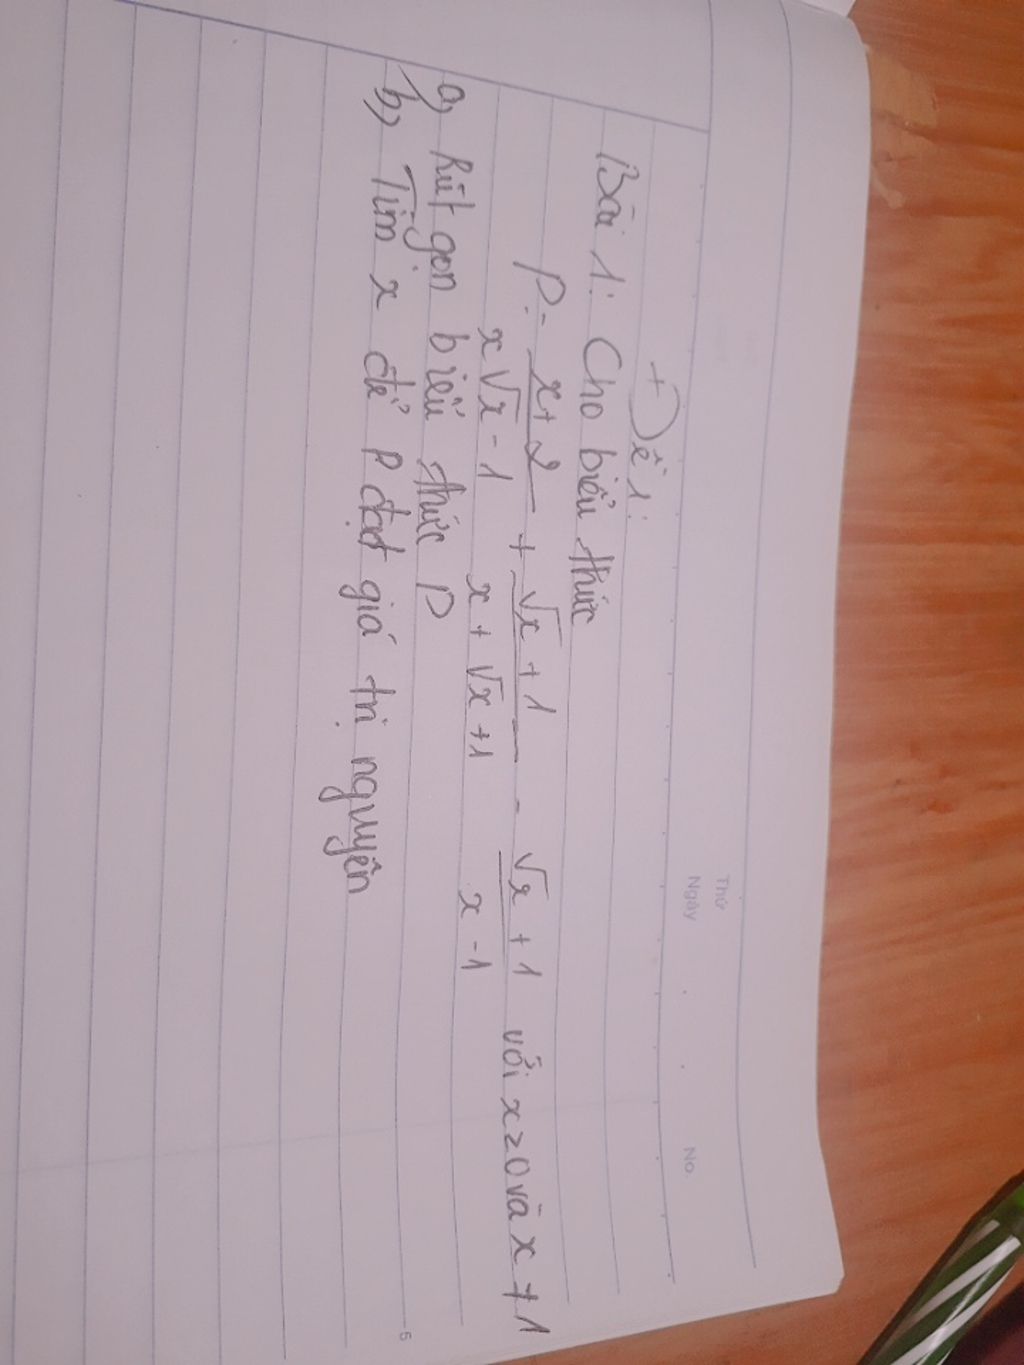 Thứ
Ngày No.
+ Đề 1:
Bài 1: Cho biểu thức
P = \frac{x+2}{x\sqrt{x}-1} + \frac{\sqrt{x}+1}{x+\sqrt{x}+1} - \frac{\sqrt{x}+1}{x-1} với x≥0 và x ≠ 1
a, Rút gọn biểu thức P
b, Tìm x để P đạt giá trị nguyên
5